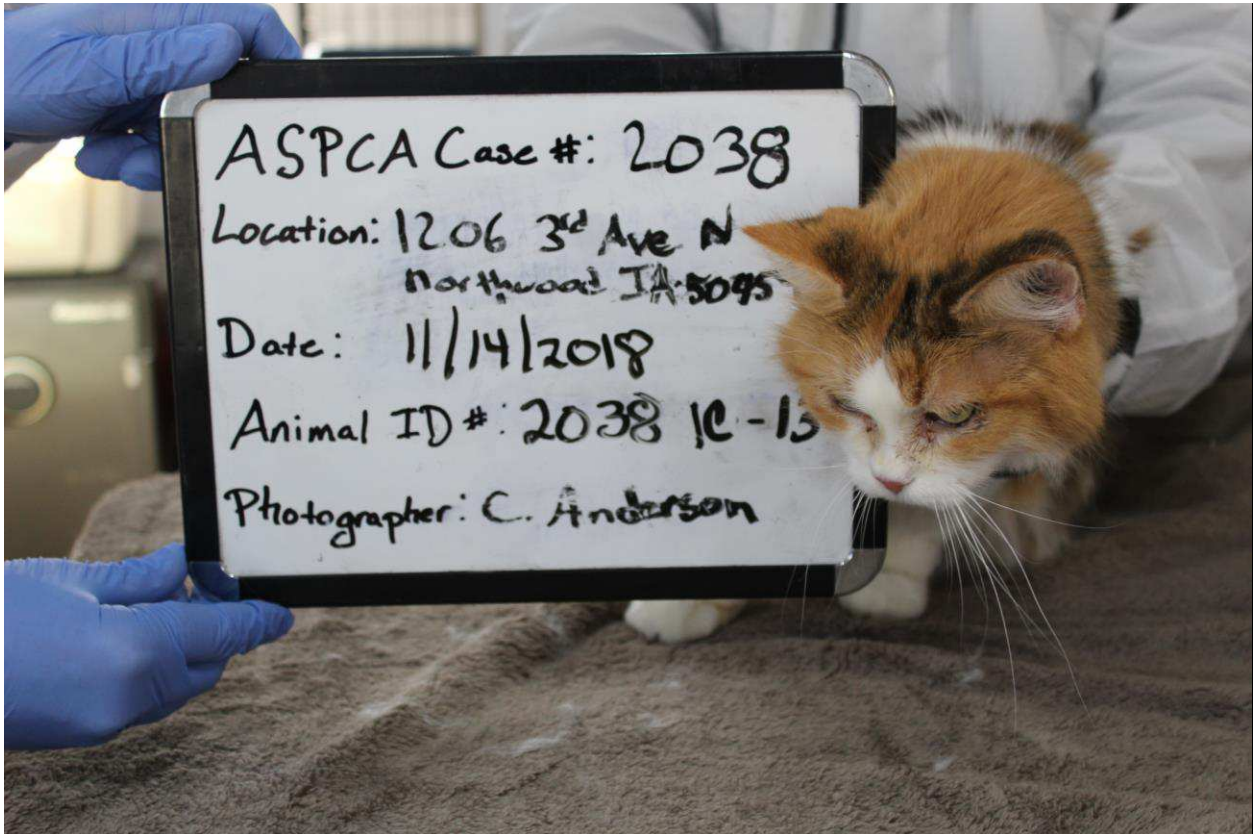 ASPCA Case #: 2038
Location: 1206 3rd Ave N
Northwood IA 5045
Date: 11/14/2018
Animal ID #: 2038 1C-13
Photographer: C. Anderson